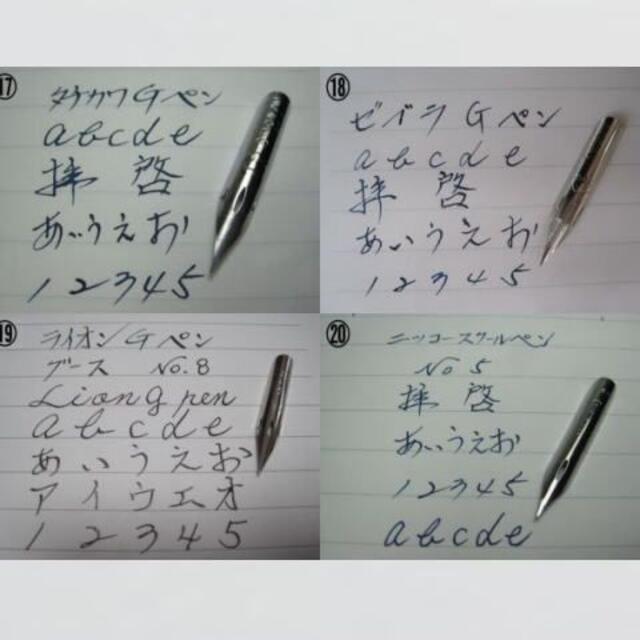 ⑰
タチカワGペン
abcde
拝啓
あいうえお
12345
⑱
ゼブラ Gペン
abcde
拝啓
あいうえお
12345
⑲
ライオンGペン
ブース No.8
Lion g pen
abcde
あいうえお
アイウエオ
12345
⑳
ニッコースクールペン
No 5
拝啓
あいうえお
12345
abcde